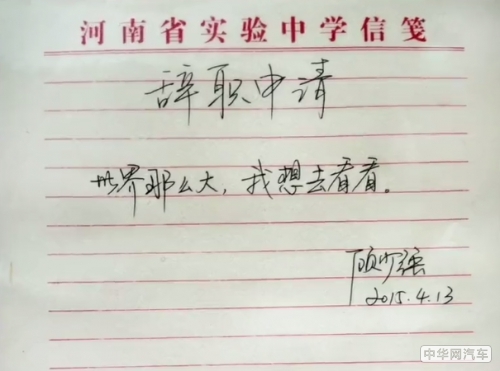 河南省实验中学信笺
辞职申请
世界那么大，我想去看看。
顾少强
2015.4.13
中华网汽车